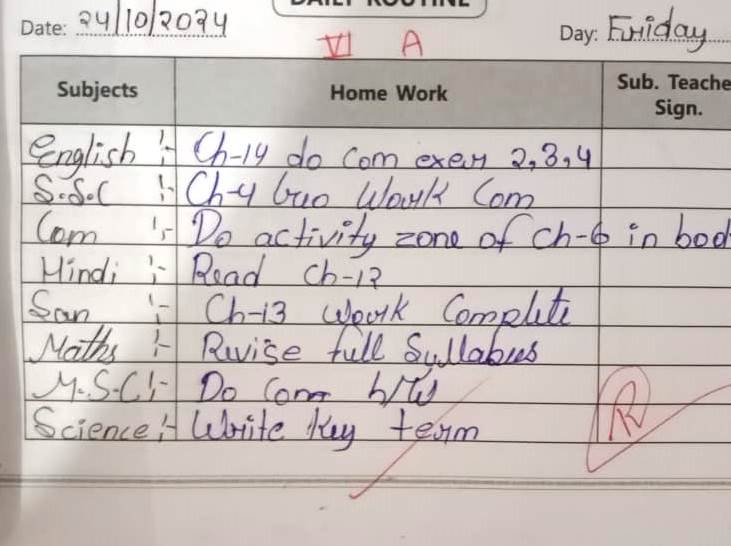 DAILY ROUTINE
Date: 24/10/2024 Day: Friday
VI A
Subjects Home Work Sub. Teache Sign.
English :- Ch-14 do com exer 2,3,4
S.S.C :- Ch-4 Work Com
Com :- Do activity zone of Ch-6 in boo
Hindi :- Read Ch-12
San :- Ch-13 Work Complete
Maths :- Revise full Syllabus
M.S.C :- Do Com h/w
Science :- Write Key term
R